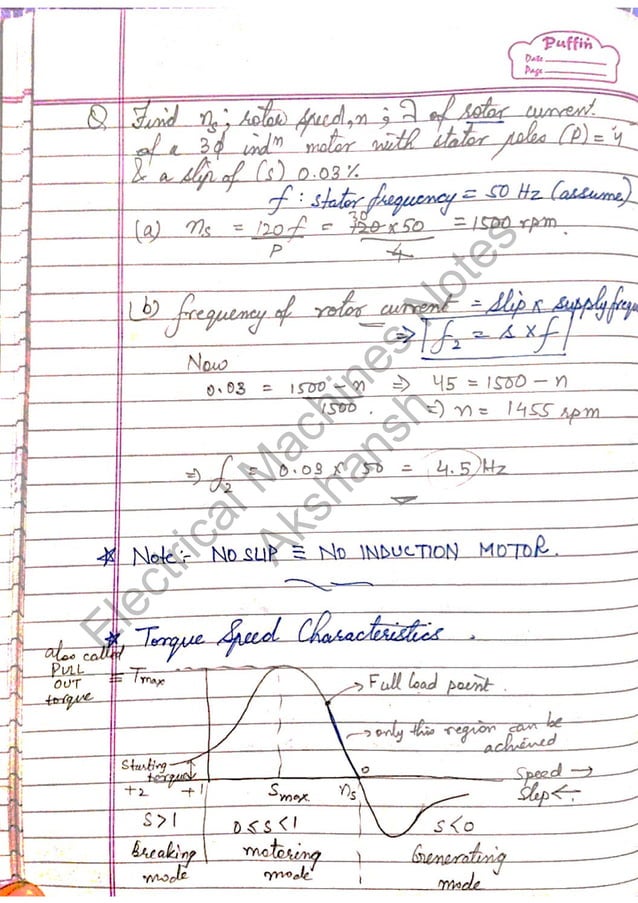 Puffin
Date
Page
Q Find ns ; rotor speed, n ; f of rotor current.
of a 3ϕ indⁿ motor with stator poles (P) = 4
& a slip of (s) 0.03%
f : stator frequency = 50 Hz (assume)
(a) ns = 120f / P = 120 x 50 / 4 = 1500 rpm.
30
(b) frequency of rotor current = slip x supply freq
⇒ f2 = s x f
Now
0.03 = 1500 - n / 1500 . ⇒ 45 = 1500 - n
⇒ n = 1455 rpm
⇒ f2 = 0.09 x 50 = 4.5 Hz
* Note:- NO SLIP ≡ NO INDUCTION MOTOR.
* Torque Speed Characteristics .
also called
PULL
OUT
torque
≡ Tmax
→ Full load point.
→ only this region can be
achieved
Starting
torque
0
Speed →
Slip ←
+2 +1 Smax ns
S>1 0≤S<1 S<0
Breaking motoring Generating
mode mode mode
Electrical Machines Notes
Akshansh